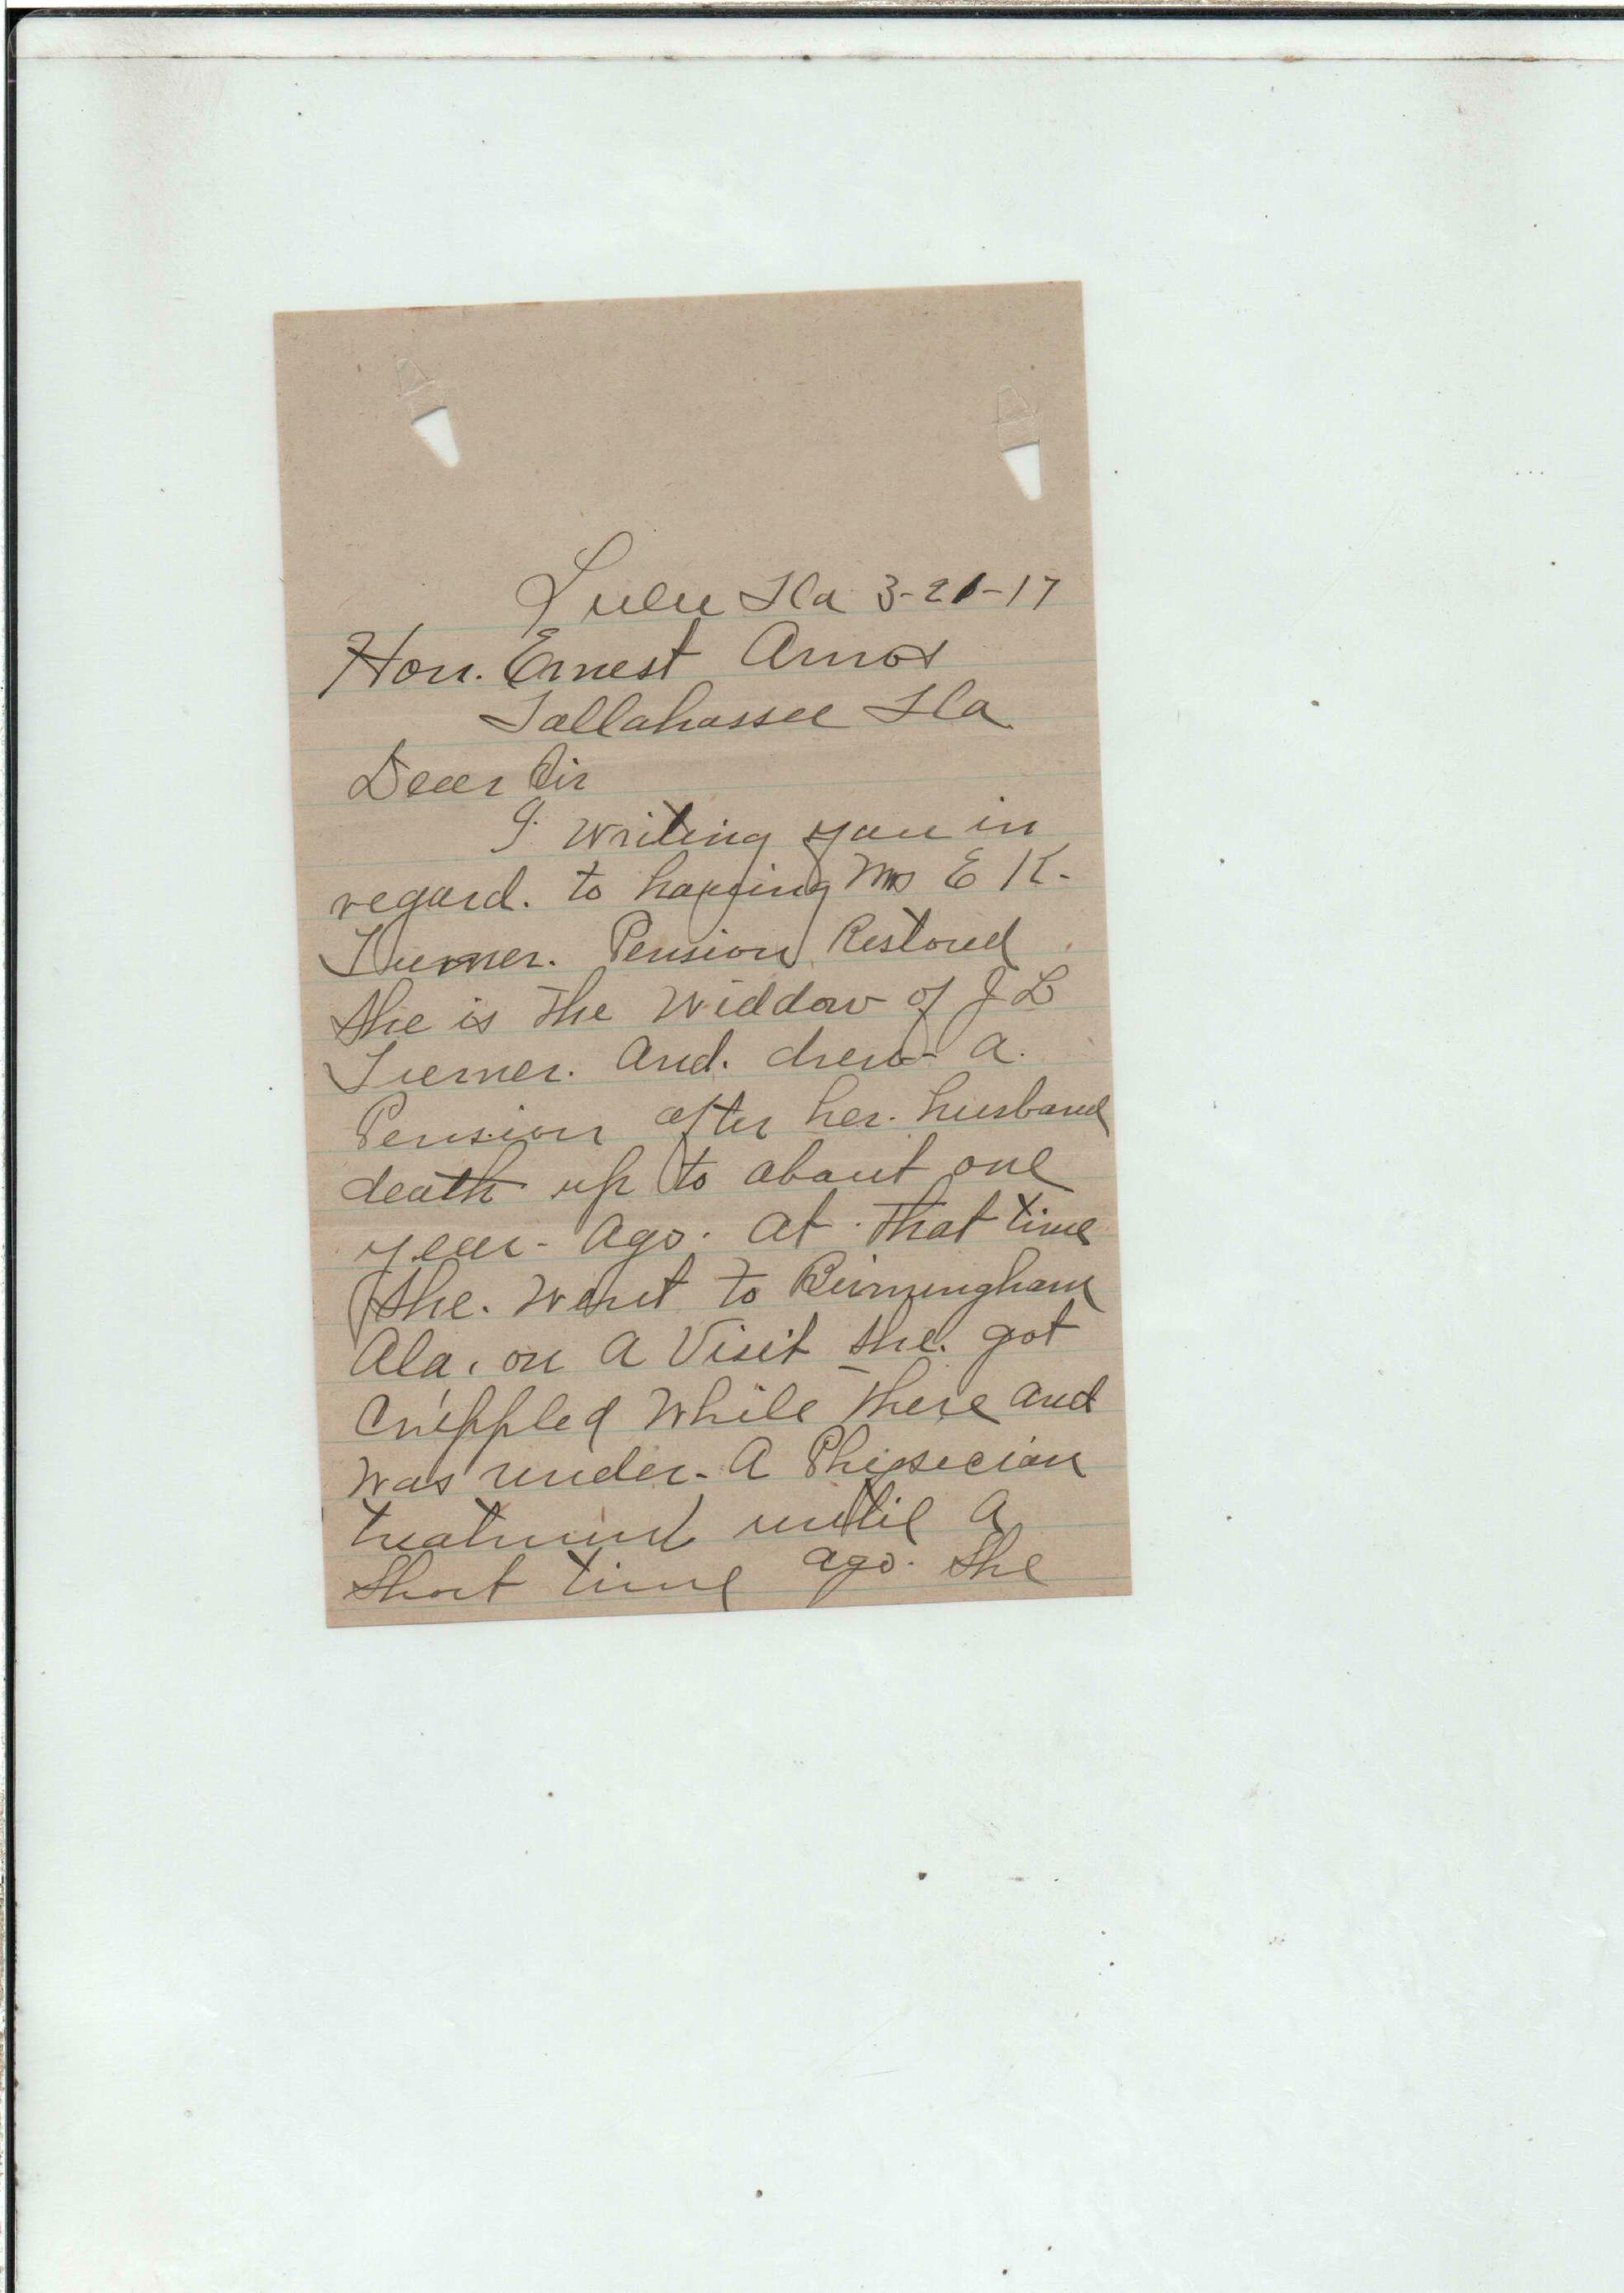 Lulu Fla 3-21-17
Hon. Ernest Amos
Tallahassee Fla
Dear Sir
I writing you in
regard. to having Mrs E K.
Turner. Pension Restored
She is The Widdow of J B
Turner. And. drew a.
Pension after her. husband
death up to about one
year. Ago. At That time
She. Went to Birmingham
Ala, on A Visit She. got
Crippled While There and
Was under. A Physecian
treatment until A
Short time ago. She